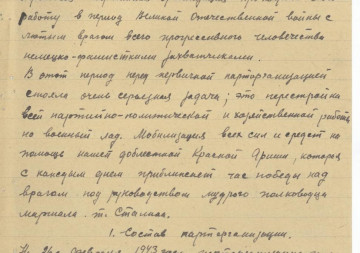 работу в период Великой Отечественной войны с
лютым врагом всего прогрессивного человечества
немецко-фашисткими захватчиками.
В этот период перед первичной парторганизацией
стояла очень серьезная задача; это перестройка
всей партийно-политической и хозяйственной работы
на военный лад. Мобилизация всех сил и средств на
помощь нашей доблестной Красной Армии, которая
с каждым днем приближает час победы над
врагом под руководством мудрого полководца
маршала т. Сталина.
1. Состав парторганизации.
1943 года